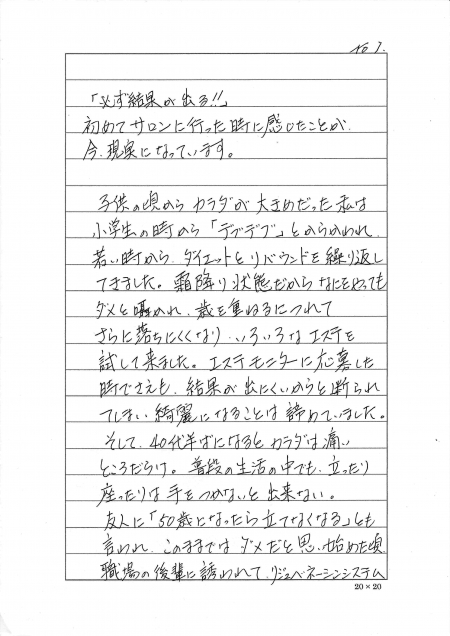 No 1.
「必ず結果が出る!!」
初めてサロンに行った時に感じたことが
今、現実になっています。
子供の頃からカラダが大きめだった私は
小学生の時から「デブデブ」とからかわれ、
若い時から、ダイエットとリバウンドを繰り返し
てきました。霜降り状態だからなにをやっても
ダメと囁かれ、歳を重ねるにつれて
さらに落ちにくくなり、いろいろなエステを
試して来ました。エステモニターに応募した
時でさえも、結果が出にくいからと断られ
てしまい綺麗になることは諦めていました。
そして、40代半ばになるとカラダは痛い
ところだらけ。普段の生活の中でも、立ったり
座ったりは手をつかないと出来ない。
友人に「50歳になったら立てなくなる」とも
言われ、このままではダメだと思い始めた頃、
職場の後輩に誘われて、リジュベネーションシステム
20×20